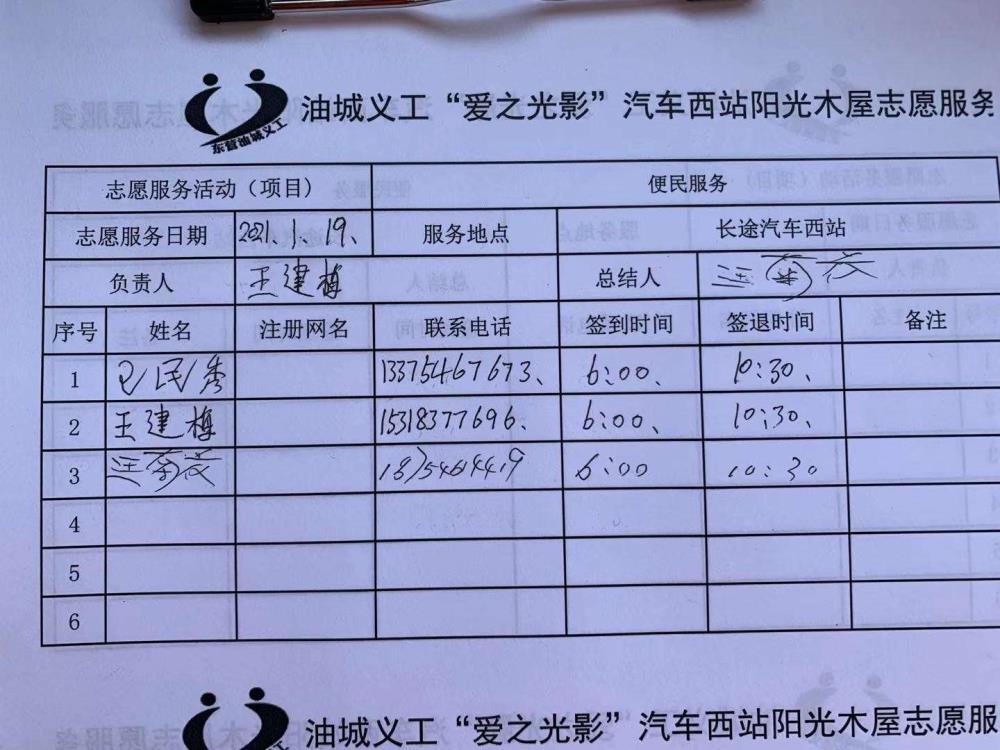 油城义工“爱之光影”汽车西站阳光木屋志愿服务
东营油城义工
志愿服务活动（项目） 便民服务
志愿服务日期 2021.1.19、 服务地点 长途汽车西站
负责人 王建梅 总结人
序号 姓名 注册网名 联系电话 签到时间 签退时间 备注
1 民秀 13375467673、 6:00、 10:30、
2 王建梅 15318377696、 6:00、 10:30、
3 6:00 10:30
4
5
6
油城义工“爱之光影”汽车西站阳光木屋志愿服